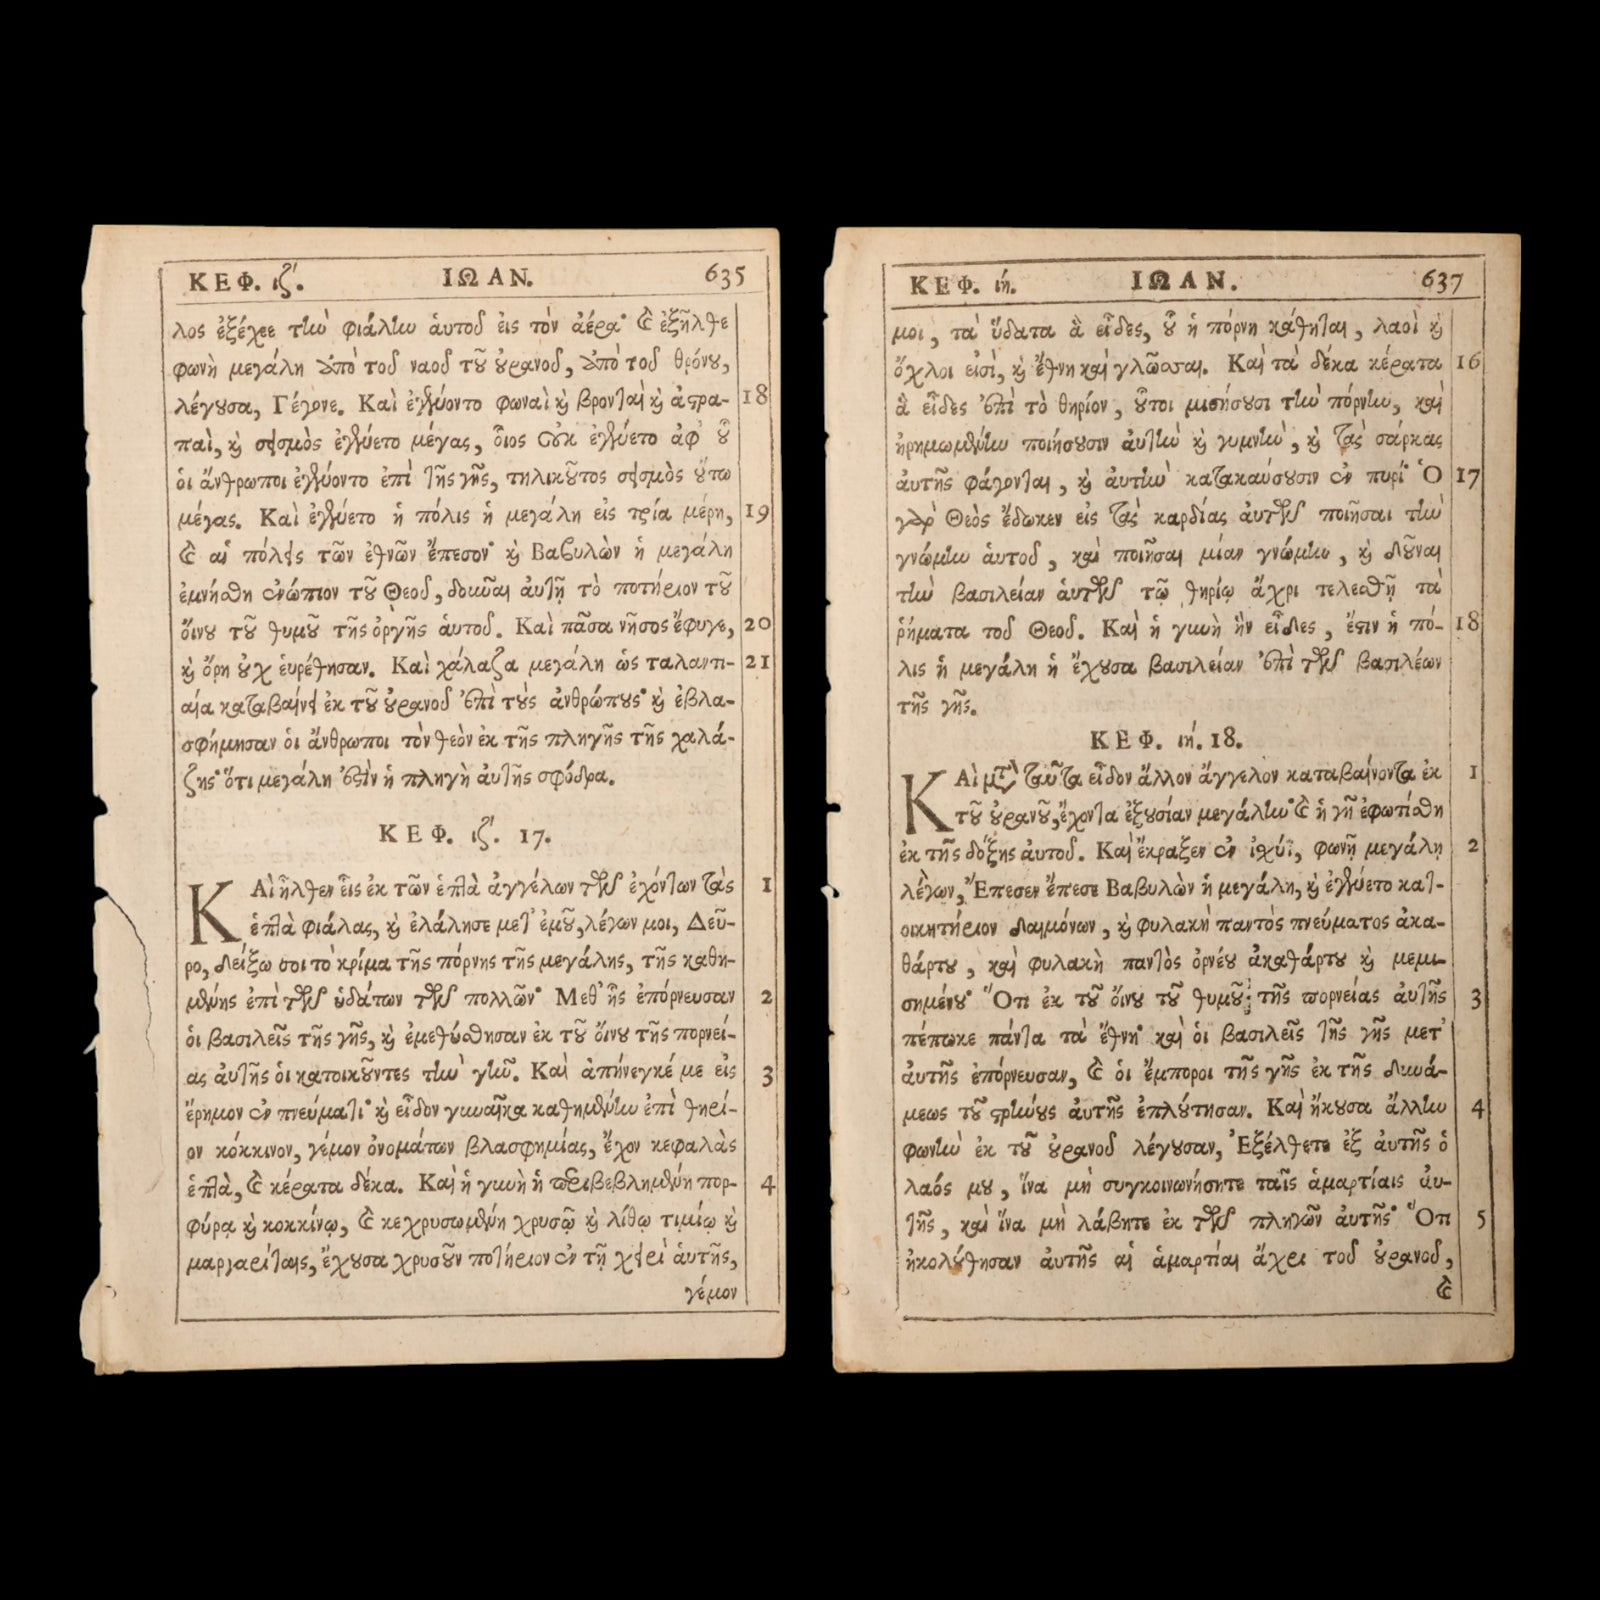 ΚΕΦ. ιζ'. ΙΩΑΝ. 635
λος ἐξέχεε τὴν φιάλην ἁυτοῦ ἐις τὸν ἀέρα· καὶ ἐξῆλθε
φωνὴ μεγάλη ἀπὸ τοῦ ναοῦ τοῦ ὀυρανοῦ, ἀπὸ τοῦ θρόνου,
λέγουσα, Γέγονε. Καὶ ἐγένοντο φωναὶ καὶ βρονταὶ καὶ ἀστρα- 18
παὶ, καὶ σεισμὸς ἐγένετο μέγας, ὅιος οὐκ ἐγένετο ἀφ' οὗ
ὁι ἄνθρωποι ἐγένοντο ἐπὶ τῆς γῆς, τηλικοῦτος σεισμὸς οὕτω
μέγας. Καὶ ἐγένετο ἡ πόλις ἡ μεγάλη εἰς τρία μέρη, 19
καὶ αἱ πόλεις τῶν ἐθνῶν ἔπεσον· καὶ Βαβυλὼν ἡ μεγάλη
ἐμνήσθη ἐνώπιον τοῦ Θεοῦ, δοῦναι ἀυτῇ τὸ ποτήριον τοῦ
ὄινου τοῦ θυμοῦ τῆς ὀργῆς ἁυτοῦ. Καὶ πᾶσα νῆσος ἔφυγε, 20
καὶ ὄρη ὀυχ ἑυρέθησαν. Καὶ χάλαζα μεγάλη ὡς ταλαντι- 21
αία καταβαίνει ἐκ τοῦ ὀυρανοῦ ἐπὶ τοὺς ἀνθρώπους· καὶ ἐβλα-
σφήμησαν ὁι ἄνθρωποι τὸν θεὸν ἐκ τῆς πληγῆς τῆς χαλά-
ζης· ὅτι μεγάλη ἐστὶν ἡ πληγὴ ἀυτῆς σφόδρα.
ΚΕΦ. ιζ'. 17.
ΚΑὶ ἦλθεν εἷς ἐκ τῶν ἑπτὰ ἀγγέλων τῶν ἐχόντων τὰς 1
ἑπτὰ φιάλας, καὶ ἐλάλησε μετ' ἐμοῦ, λέγων μοι, Δεῦ-
ρο, δείξω σοι τὸ κρίμα τῆς πόρνης τῆς μεγάλης, τῆς καθη-
μένης ἐπὶ τῶν ὑδάτων τῶν πολλῶν· Μεθ' ἧς ἐπόρνευσαν 2
ὁι βασιλεῖς τῆς γῆς, καὶ ἐμεθύσθησαν ἐκ τοῦ ὄινου τῆς πορνεί-
ας ἀυτῆς ὁι κατοικοῦντες τὴν γῆν. Καὶ ἀπήνεγκέ με εἰς 3
ἔρημον ἐν πνεύματι· καὶ εἶδον γυναῖκα καθημένην ἐπὶ θηρί-
ον κόκκινον, γέμον ὀνομάτων βλασφημίας, ἔχον κεφαλὰς
ἑπτὰ, καὶ κέρατα δέκα. Καὶ ἡ γυνὴ ἡ περιβεβλημένη πορ- 4
φύρᾳ καὶ κοκκίνῳ, καὶ κεχρυσωμένη χρυσῷ καὶ λίθῳ τιμίῳ καὶ
μαργαρίταις, ἔχουσα χρυσοῦν ποτήριον ἐν τῇ χειρὶ ἁυτῆς,
γέμον
ΚΕΦ. ιή. ΙΩΑΝ. 637
μοι, τὰ ὕδατα ἃ εἶδες, οὗ ἡ πόρνη κάθηται, λαοὶ καὶ
ὄχλοι εἰσὶ, καὶ ἔθνη καὶ γλῶσσαι. Καὶ τὰ δέκα κέρατα 16
ἃ εἶδες ἐπὶ τὸ θηρίον, οὗτοι μισήσουσι τὴν πόρνην, καὶ
ἠρημωμένην ποιήσουσιν ἀυτὴν καὶ γυμνὴν, καὶ τὰς σάρκας
ἀυτῆς φάγονται, καὶ ἀυτὴν κατακαύσουσιν ἐν πυρί· Ὁ 17
γὰρ Θεὸς ἔδωκεν εἰς τὰς καρδίας ἀυτῶν ποιῆσαι τὴν
γνώμην ἁυτοῦ, καὶ ποιῆσαι μίαν γνώμην, καὶ δοῦναι
τὴν βασιλείαν ἁυτῶν τῷ θηρίῳ ἄχρι τελεσθῇ τὰ
ῥήματα τοῦ Θεοῦ. Καὶ ἡ γυνὴ ἣν εἶδες, ἔστιν ἡ πό- 18
λις ἡ μεγάλη ἡ ἔχουσα βασιλείαν ἐπὶ τῶν βασιλέων
τῆς γῆς.
ΚΕΦ. ιή. 18.
ΚΑὶ μετὰ ταῦτα εἶδον ἄλλον ἄγγελον καταβαίνοντα ἐκ 1
τοῦ ὀυρανοῦ, ἔχοντα ἐξουσίαν μεγάλην· καὶ ἡ γῆ ἐφωτίσθη
ἐκ τῆς δόξης ἀυτοῦ. Καὶ ἔκραξεν ἐν ἰσχύϊ, φωνῇ μεγάλῃ 2
λέγων, Ἔπεσεν ἔπεσε Βαβυλὼν ἡ μεγάλη, καὶ ἐγένετο κατ-
οικητήριον δαιμόνων, καὶ φυλακὴ παντὸς πνεύματος ἀκα-
θάρτου, καὶ φυλακὴ παντὸς ὀρνέου ἀκαθάρτου καὶ μεμι-
σημένου· Ὅτι ἐκ τοῦ ὄινου τοῦ θυμοῦ τῆς πορνείας ἀυτῆς 3
πέπωκε πάντα τὰ ἔθνη· καὶ ὁι βασιλεῖς τῆς γῆς μετ'
ἀυτῆς ἐπόρνευσαν, καὶ ὁι ἔμποροι τῆς γῆς ἐκ τῆς δυνά-
μεως τοῦ στρήνους ἀυτῆς ἐπλούτησαν. Καὶ ἤκουσα ἄλλην 4
φωνὴν ἐκ τοῦ ὀυρανοῦ λέγουσαν, Ἐξέλθετε ἐξ ἀυτῆς ὁ
λαός μου, ἵνα μὴ συγκοινωνήσητε ταῖς ἁμαρτίαις ἀυ-
τῆς, καὶ ἵνα μὴ λάβητε ἐκ τῶν πληγῶν ἀυτῆς· Ὅτι 5
ἠκολούθησαν ἀυτῆς αἱ ἁμαρτίαι ἄχρι τοῦ ὀυρανοῦ,
καὶ